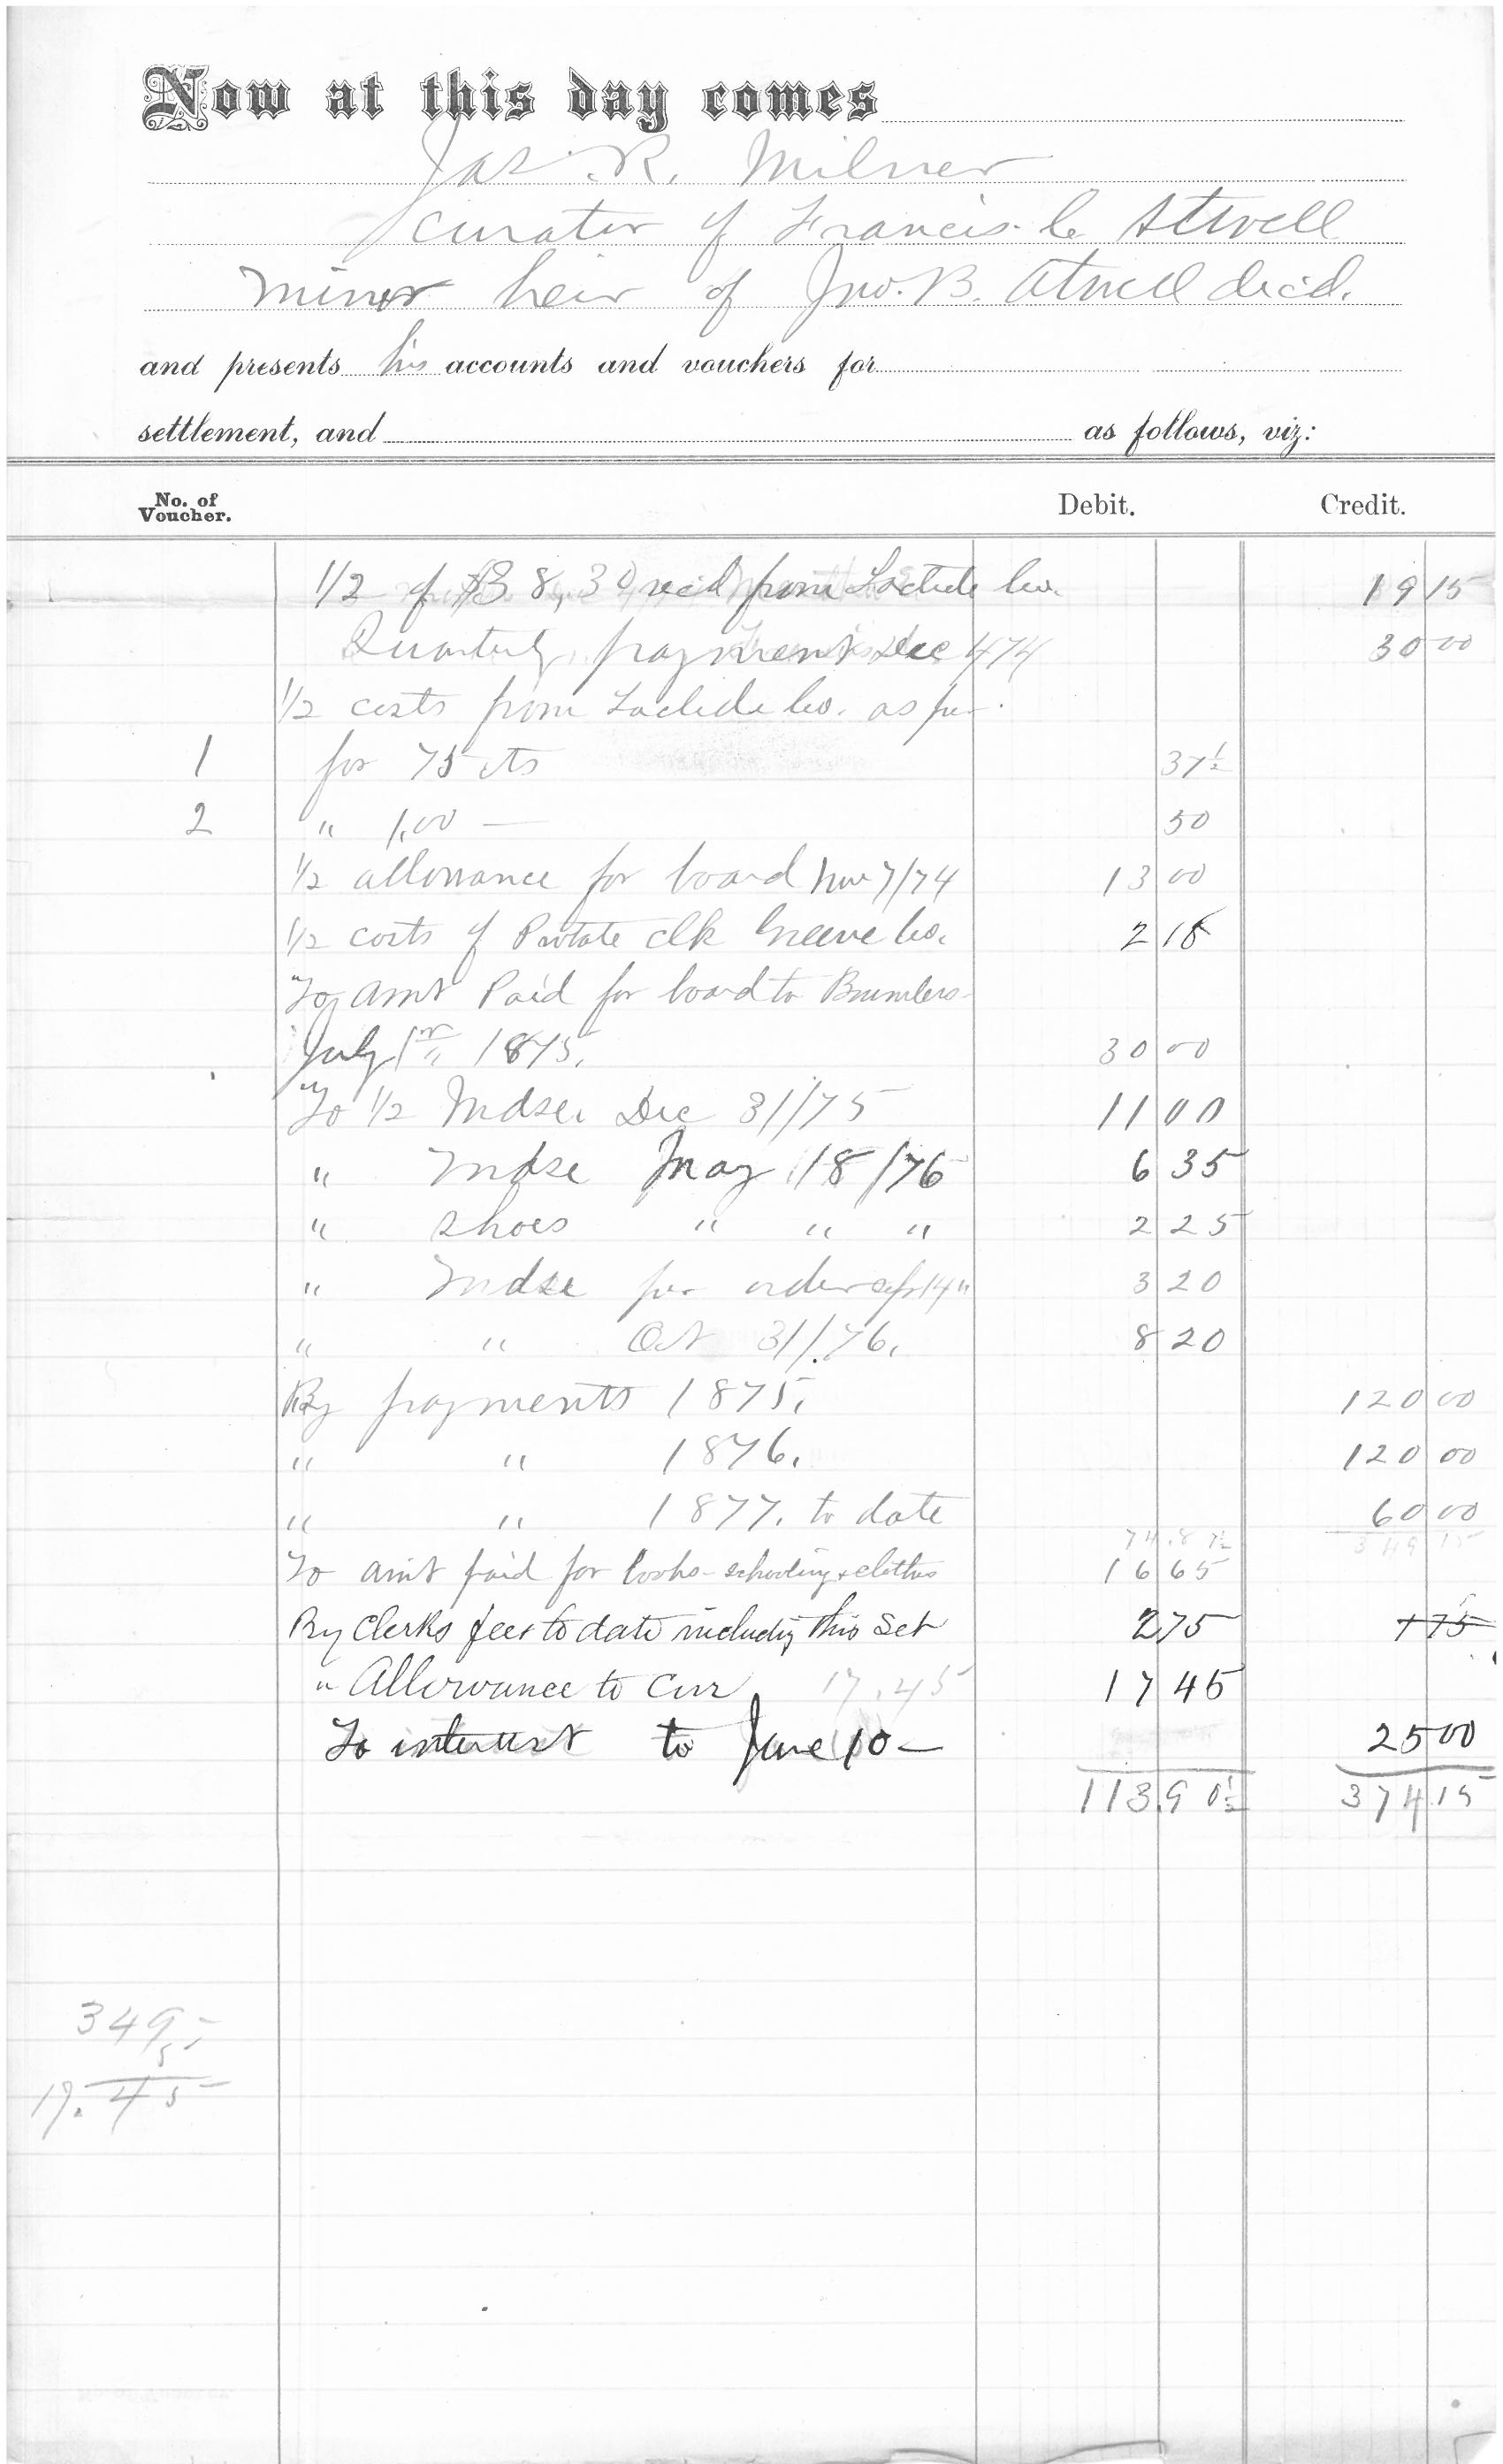 Now at this day comes
Jas. R. Milner
curator of Francis. C. Atwell
minor heir of Jno. B. Atwell decd.
and presents his accounts and vouchers for
settlement, and as follows, viz:
No. of Voucher. Debit. Credit.
1/2 of $38,30 recd from Laclede Co. 19 15
Quarterly payment Dec 4/74 30 00
1/2 costs from Laclede Co. as per
1 for 75 cts 37½
2 " 1,00 — 50
1/2 allowance for board Nov 7/74 13 00
1/2 costs of Probate Clk Greene Co. 2 18
To amt Paid for board to
July 1st 1875. 30 00
To 1/2 Mdse. Dec 31/75 11 00
" Mdse May 18/76 6 35
" shoes " " " 2 25
" Mdse per order Sep 14 " 3 20
" " Oct 31/76. 8 20
By payments 1875. 120 00
" " 1876. 120 00
" " 1877. to date 60 00
74.87½ 349 15
To amt paid for books - schooling & clothes 16 65
By Clerks fees to date including this Set 2 75 1 75
" Allowance to Cur 17.45 17 45
To interest to June 10 — 25 00
113.90½ 374 15
349,-
5
17.45